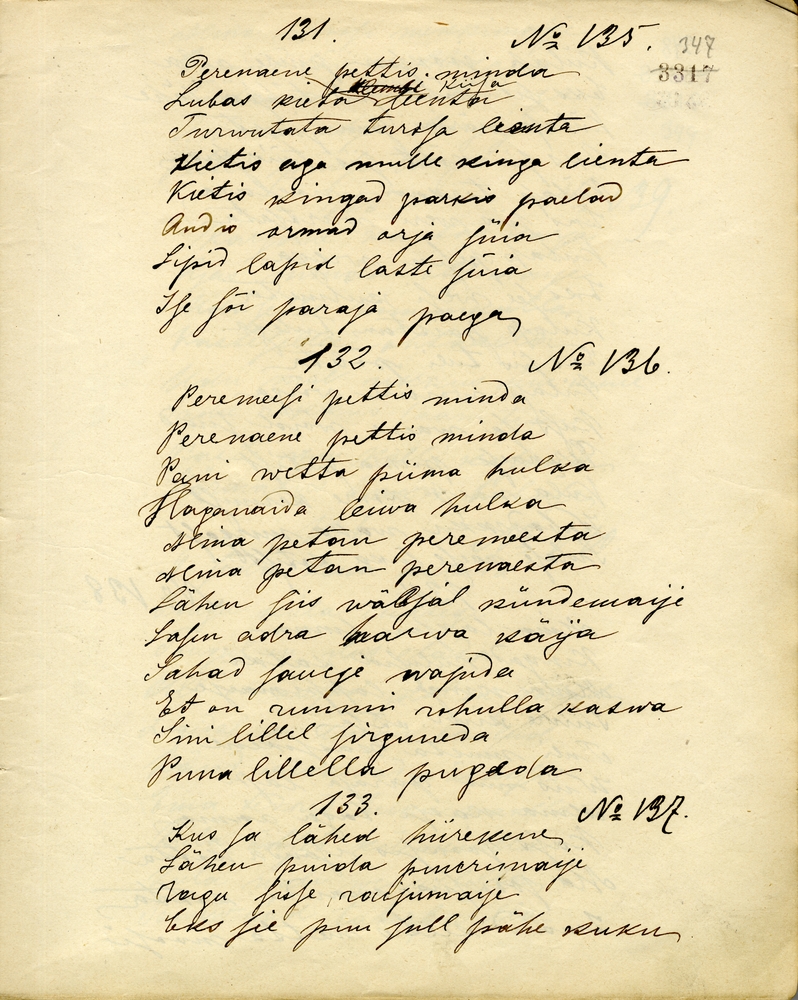 131. № 135. 347
3317
Perenaene pettis minda
Lubas kieta lienta Kiisa
Turwutata turssa lienta
Kietis aga mulle kinga lienta
Kietis kingad parkis paelad
Andis ormad orja süia
Lipid lapid laste süia
Ise sõi paraja paega
132. № 136.
Peremeesi pettis minda
Perenaene pettis minda
Pani wetta piima hulka
Haganaida leiwa hulka
Mina petan peremeesta
Mina petan perenaesta
Lähen siis wäljäl kündemaije
Lasen adra harwa käija
Sahad saueje wajuda
Et on rummi rohulla kaswa
Sini lillel sirguneda
Puna lillella pugeda
133. № 137.
Kus sa lähed hiirekene
Lähen puida puurimaije
Vagu sisse raijumaije
Eks sie puu sull pähe kuku